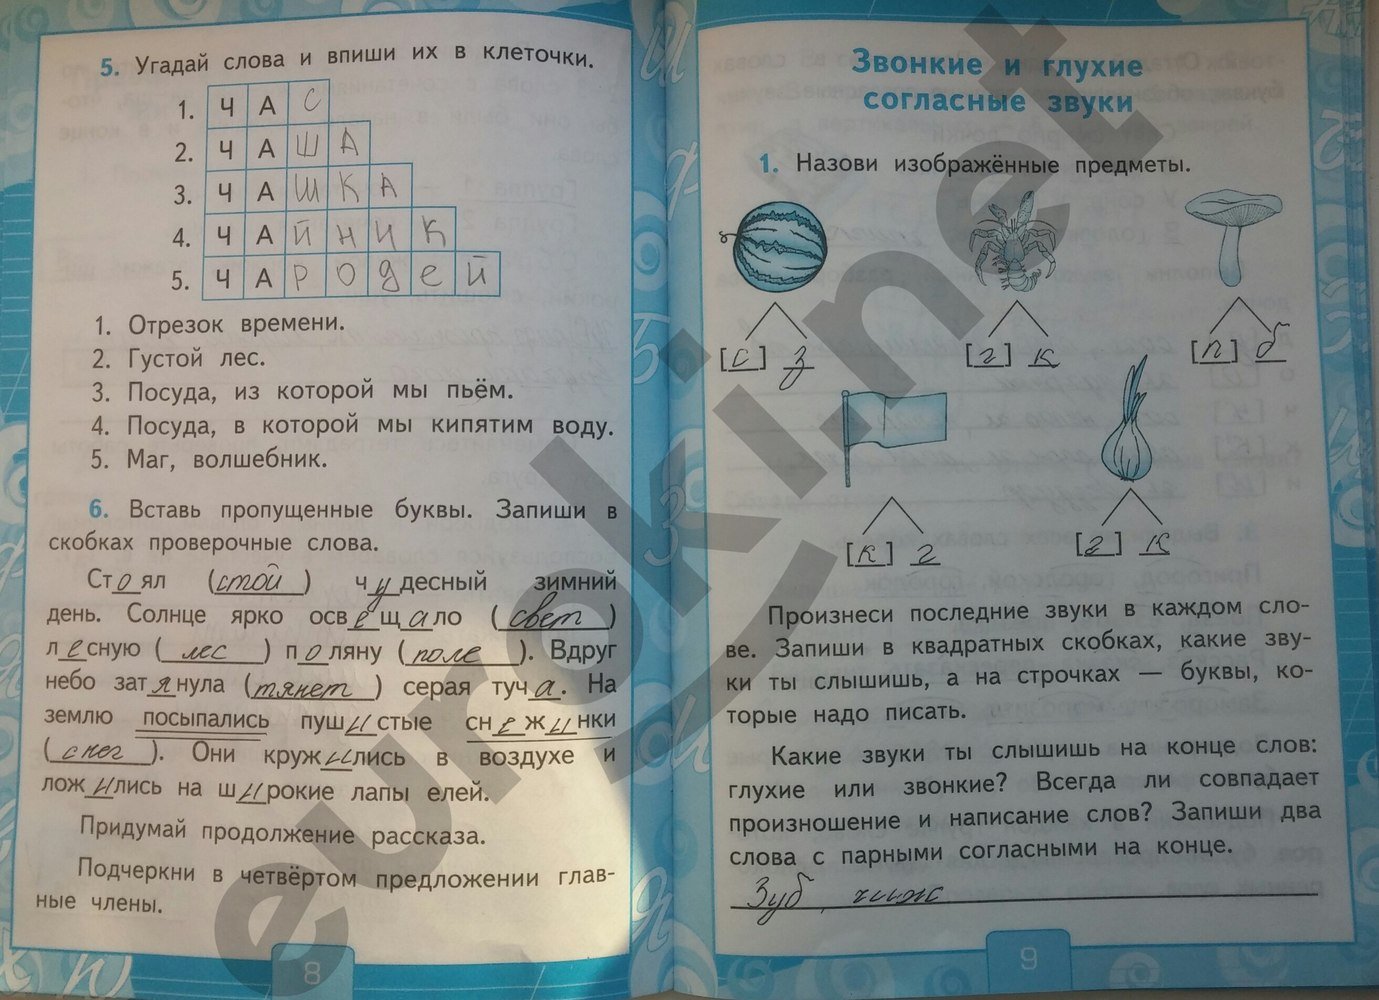 5. Угадай слова и впиши их в клеточки.
1. ЧАС
2. ЧАША
3. ЧАШКА
4. ЧАЙНИК
5. ЧАРОДЕЙ
1. Отрезок времени.
2. Густой лес.
3. Посуда, из которой мы пьём.
4. Посуда, в которой мы кипятим воду.
5. Маг, волшебник.
6. Вставь пропущенные буквы. Запиши в
скобках проверочные слова.
Стоял (стой) чудесный зимний
день. Солнце ярко освещало (свет)
лесную (лес) поляну (поле). Вдруг
небо затянула (тянет) серая туча. На
землю посыпались пушистые снежинки
(снег). Они кружились в воздухе и
ложились на широкие лапы елей.
Придумай продолжение рассказа.
Подчеркни в четвёртом предложении глав-
ные члены.
8
Звонкие и глухие
согласные звуки
1. Назови изображённые предметы.
[с] з [г] к [п] б
[к] г [г] к
Произнеси последние звуки в каждом сло-
ве. Запиши в квадратных скобках, какие зву-
ки ты слышишь, а на строчках — буквы, ко-
торые надо писать.
Какие звуки ты слышишь на конце слов:
глухие или звонкие? Всегда ли совпадает
произношение и написание слов? Запиши два
слова с парными согласными на конце.
Зуб, чиж
9
euroki.net